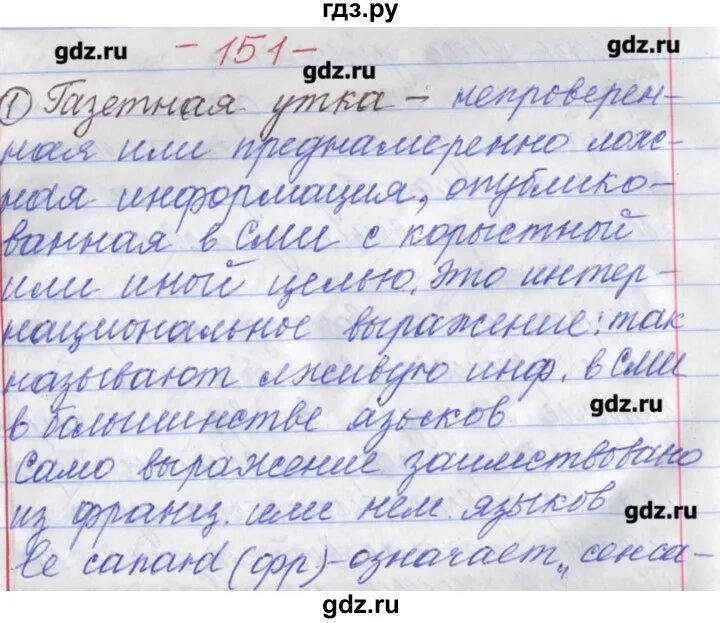 гдз.ру
gdz.ru
- 151 -
gdz.ru
gdz.ru
① Газетная утка – непроверен-
ная или преднамеренно лож-
ная информация, опублико-
ванная в СМИ с корыстной
или иной целью. Это интер-
национальное выражение: так
называют лживую инф. в СМИ
в большинстве языков
gdz.ru
Само выражение заимствовано
из франц. или нем. языков
gdz.ru
le canard (фр) - означает „ сенса-
gdz.ru